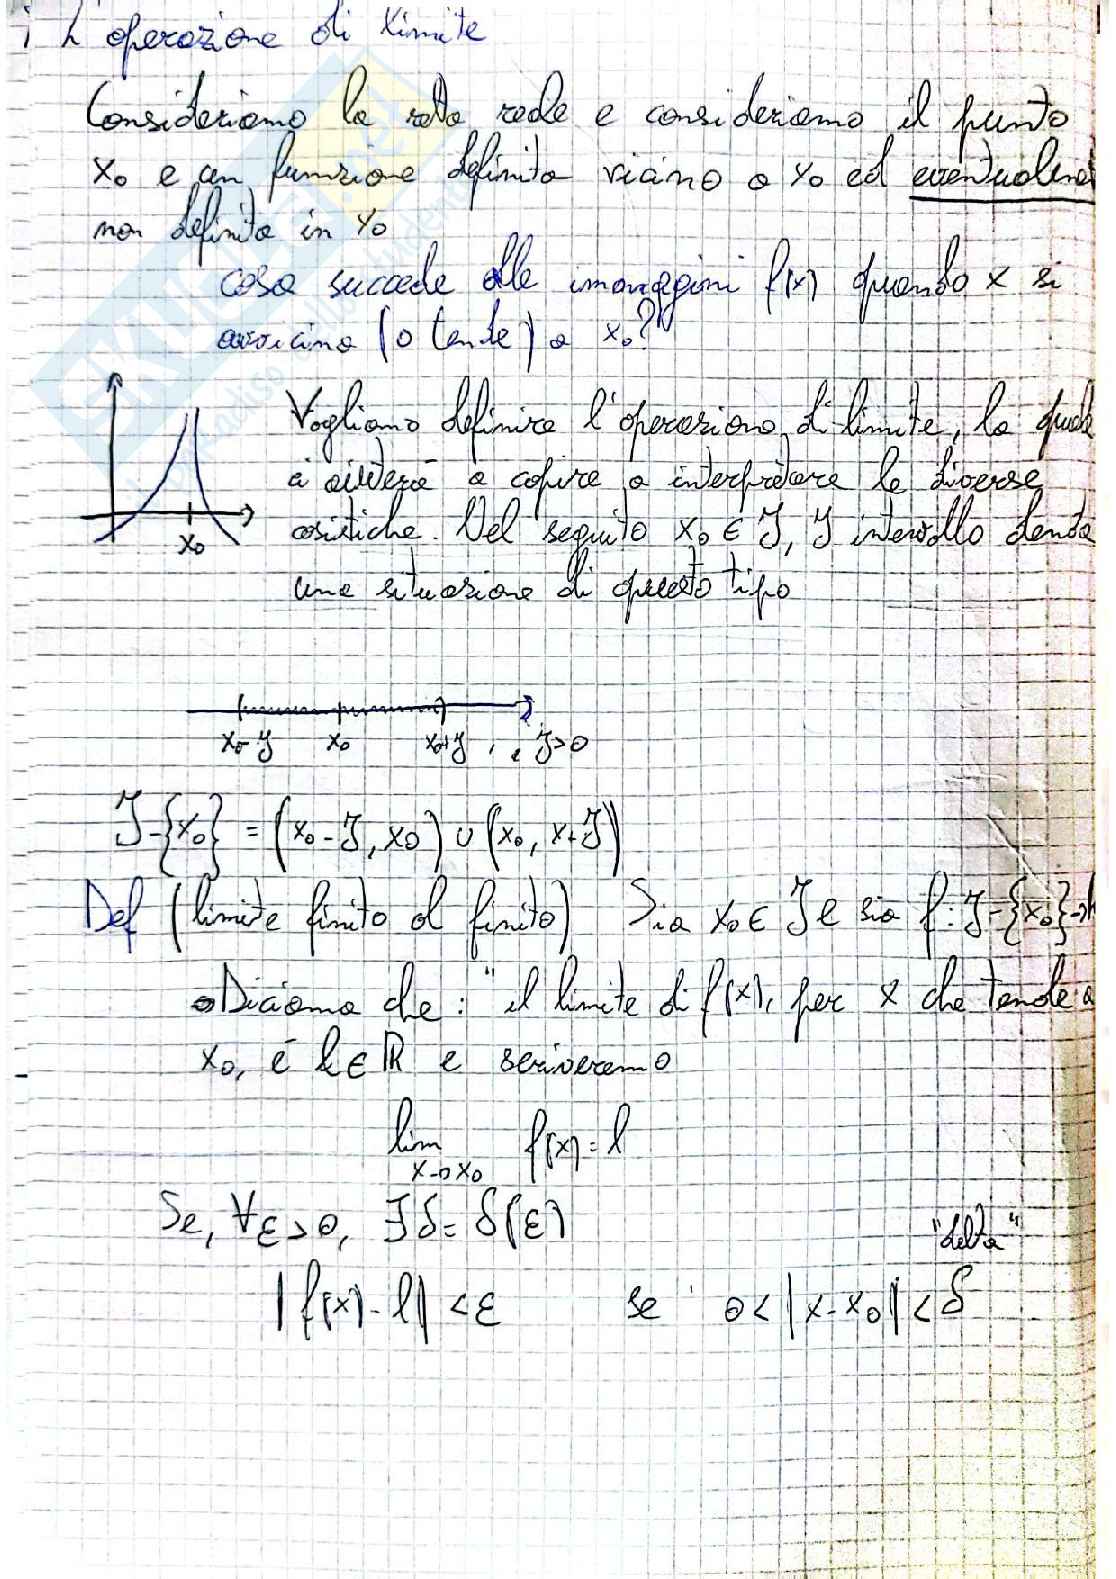 L'operazione di Limite
Consideriamo la retta reale e consideriamo il punto
x₀ e un funzione definita vicino a x₀ ed eventualme
non definita in x₀
cosa succede alle immaggini f(x) quando x si
avvicina (o tende) a x₀?
Vogliamo definire l'operazione di limite, la quale
ci aiuterà a capire a interpretare le diverse
casistiche. Nel seguito x₀ ∈ J, J intervallo denota
una situazione di questo tipo
x₀
x₀-J x₀ x₀+J , J>0
J-{x₀} = (x₀-J, x₀) ∪ (x₀, x+J)
Def (limite finito al finito) Sia x₀ ∈ J e sia f: J-{x₀}→
Diciamo che: "il limite di f(x), per x che tende a
x₀, é l∈ℝ e scriveremo
lim f(x)=l
x→x₀
Se, ∀ε>0, ∃δ=δ(ε)
"delta"
|f(x)-l|<ε se 0<|x-x₀|<δ